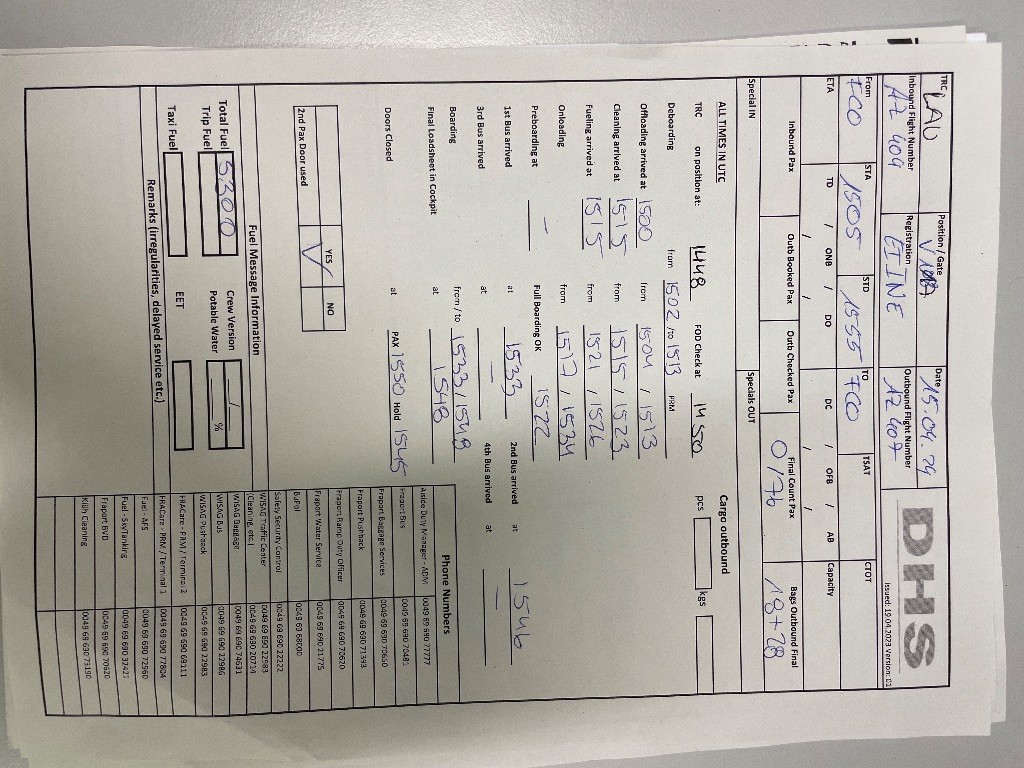 TRC LAU Position / Gate Date 15.09.24 DHS
Inbound Flight Number AZ 404 Registration EIINE Outbound Flight Number AZ 407 Issued: 19.04.2023 Version: 01
From FCO STA 1505 STD 1555 TO FCO TSAT CTOT
ETA TD / ONB / DO DC / OFB / AB Capacity
/ / / /
Inbound Pax Outb Booked Pax Outb Checked Pax Final Count Pax 0/76 Bags Outbound Final 18+28
Special IN Specials OUT
ALL TIMES IN UTC Cargo outbound
TRC on position at: 1448 FOD Check at 1450 pcs kgs
Deboarding from 1502 /to 1513 PRM
Offloading arrived at 1500 from 1504 / 1513
Cleaning arrived at 1515 from 1515 / 1523
Fueling arrived at 1515 from 1521 / 1526
Onloading from 1517 / 1534
Preboarding at – Full Boarding OK 1522
1st Bus arrived at 1533 2nd Bus arrived at 1546
3rd Bus arrived at – 4th Bus arrived at –
Boarding from / to 1533 / 1548
Final Loadsheet in Cockpit at 1548
Doors Closed at PAX 1550 Hold 1545
YES NO
2nd Pax Door used ✓
Fuel Message Information
Total Fuel 5300 Crew Version /
Trip Fuel Potable Water %
Taxi Fuel EET
Remarks (irregularities, delayed service etc.)
Phone Numbers
Airside Duty Manager - ADM 0049 69 690 77777
Fraport Bus 0049 69 690 70485
Fraport Baggage Services 0049 69 690 70650
Fraport Pushback 0049 69 690 71393
Fraport Ramp Duty Officer 0049 69 690 70620
Fraport Water Service 0049 69 690 21775
BuPol 0049 69 68000
Safety Security Control 0049 69 690 22222
WISAG Traffic Center 0049 69 690 22983
(Cleaning, etc.) 0049 69 690 20714
WISAG Baggage 0049 69 690 74631
WISAG Bus 0049 69 690 22986
WISAG Pushback 0049 69 690 22983
FRACare - PRM / Terminal 2 0049 69 690 69111
FRACare - PRM / Terminal 1 0049 69 690 77804
Fuel - AFS 0049 69 690 72560
Fuel - Skytanking 0049 69 690 32421
Fraport BVD 0049 69 690 70620
Klüh Cleaning 0049 69 690 73190